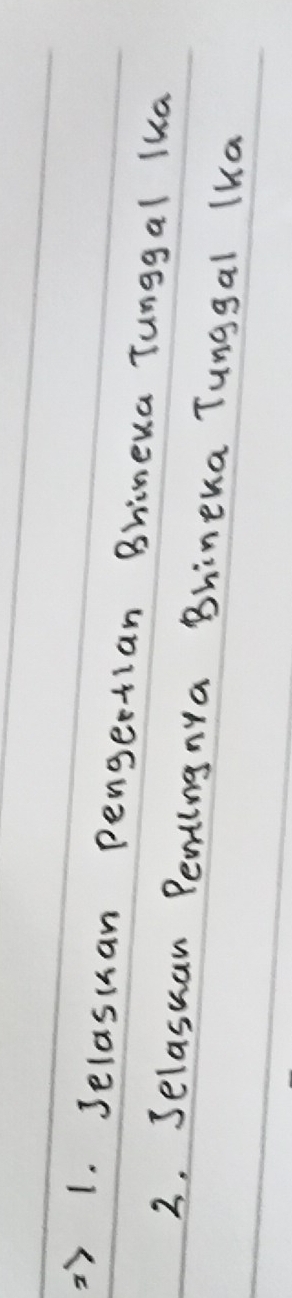 => 1. Jelaskan Pengertian Bhineka Tunggal Ika
2. Jelaskan Pentingnya Bhineka Tunggal Ika